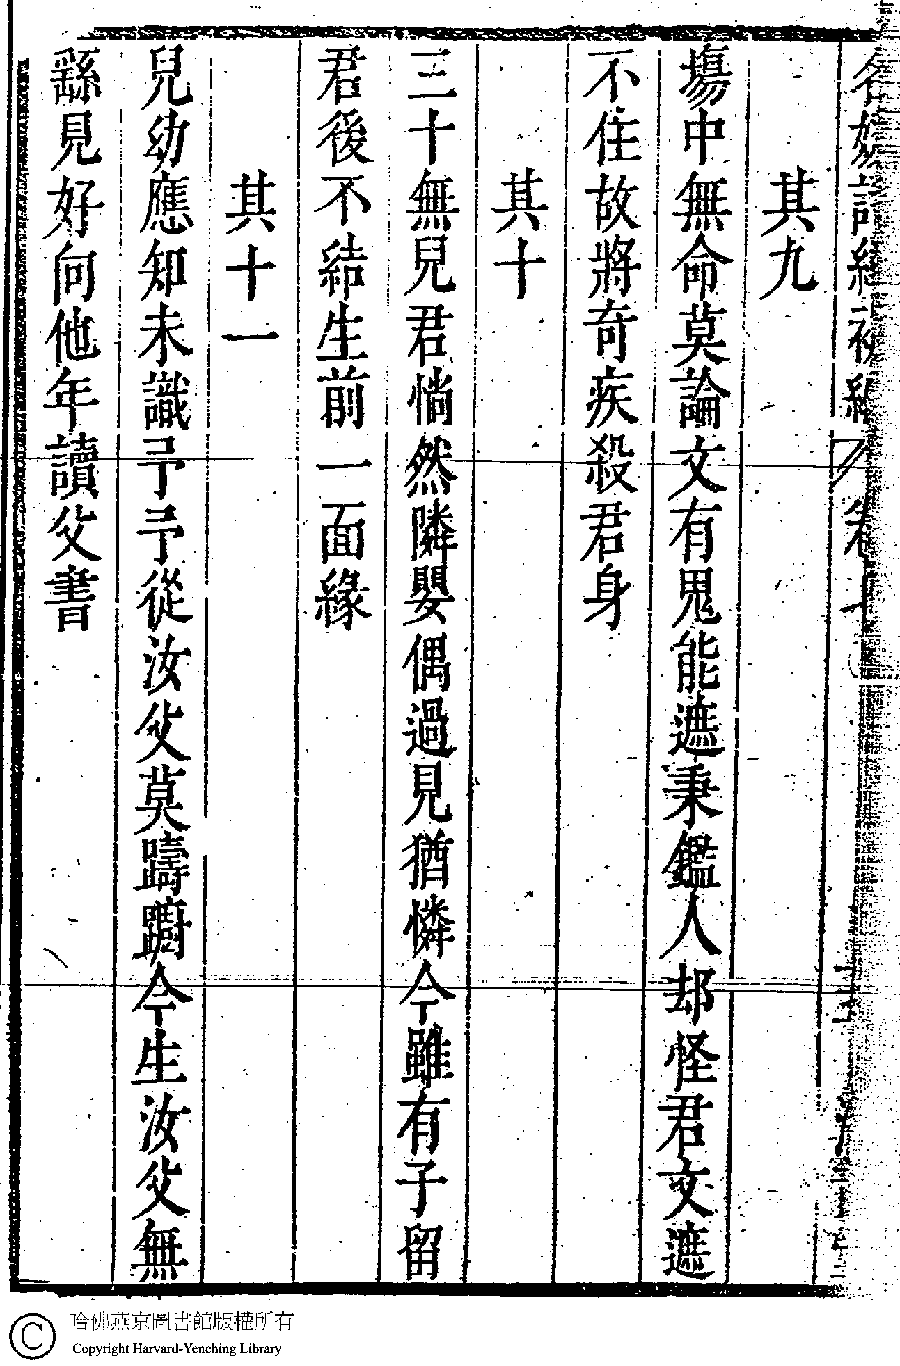 其九
塲中無命莫論文有鬼能遮秉鑑人却怪君文遮
不住故將奇疾殺君身
其十
三十無兒君惝然隣嬰偶過見猶憐今雖有子留
君後不結生前一面緣
其十一
兒幼應知未識予予從汝父莫躊躕今生汝父無
繇見好向他年讀父書
哈佛燕京圖書館版權所有
Copyright Harvard-Yenching Library